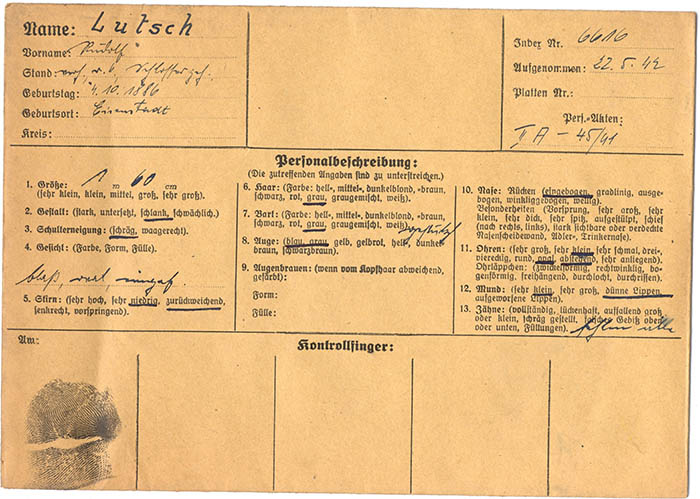 Name: Lutsch
Vorname: Rudolf
Stand: verh., r. k., Schlossergeh.
Geburtstag: 4.10.1886
Geburtsort: Eisenstadt
Kreis:
Index Nr. 6616
Aufgenommen: 22.5.42
Platten Nr.:
Pers.-Akten:
II A - 45/41
Personalbeschreibung:
(Die zutreffenden Angaben sind zu unterstreichen.)
1. Größe: 1 m 60 cm
(sehr klein, klein, mittel, groß, sehr groß).
2. Gestalt: (stark, untersetzt, schlank, schwächlich).
3. Schulterneigung: (schräg, waagerecht).
4. Gesicht: (Farbe, Form, Fülle).
blaß, oval,
5. Stirn: (sehr hoch, sehr niedrig, zurückweichend,
senkrecht, vorspringend).
6. Haar: (Farbe: hell-, mittel-, dunkelblond, -braun,
schwarz, rot, grau, graugemischt, weiß).
7. Bart: (Farbe: hell-, mittel-, dunkelblond, -braun,
schwarz, rot, grau, graugemischt, weiß).
8. Auge: (blau, grau, gelb, gelbrot, hell-, dunkel-
braun, schwarzbraun).
9. Augenbrauen: (wenn vom Kopfhaar abweichend,
gefärbt):
Form:
Fülle:
10. Nase: Rücken (eingebogen, gradlinig, ausge-
bogen, winkliggebogen, wellig).
Besonderheiten (Vorsprung, sehr groß, sehr
klein, sehr dick, sehr spitz, aufgestülpt, schief
(nach rechts, links), stark sichtbare oder verdeckte
Nasenscheidewand, Adler-, Trinkernase).
11. Ohren: (sehr groß, sehr klein, sehr schmal, drei-
viereckig, rund, oval, abstehend, sehr anliegend).
Ohrläppchen: (zwickelförmig, rechtwinklig, bo-
genförmig, freihängend, durchlocht, durchrissen).
12. Mund: (sehr klein, sehr groß, dünne Lippen,
aufgeworfene Lippen).
13. Zähne: (vollständig, lückenhaft, auffallend groß
oder klein, schräg gestellt, falsches Gebiß oben
oder unten, Füllungen). fehlen alle
Am:
Kontrollfinger: